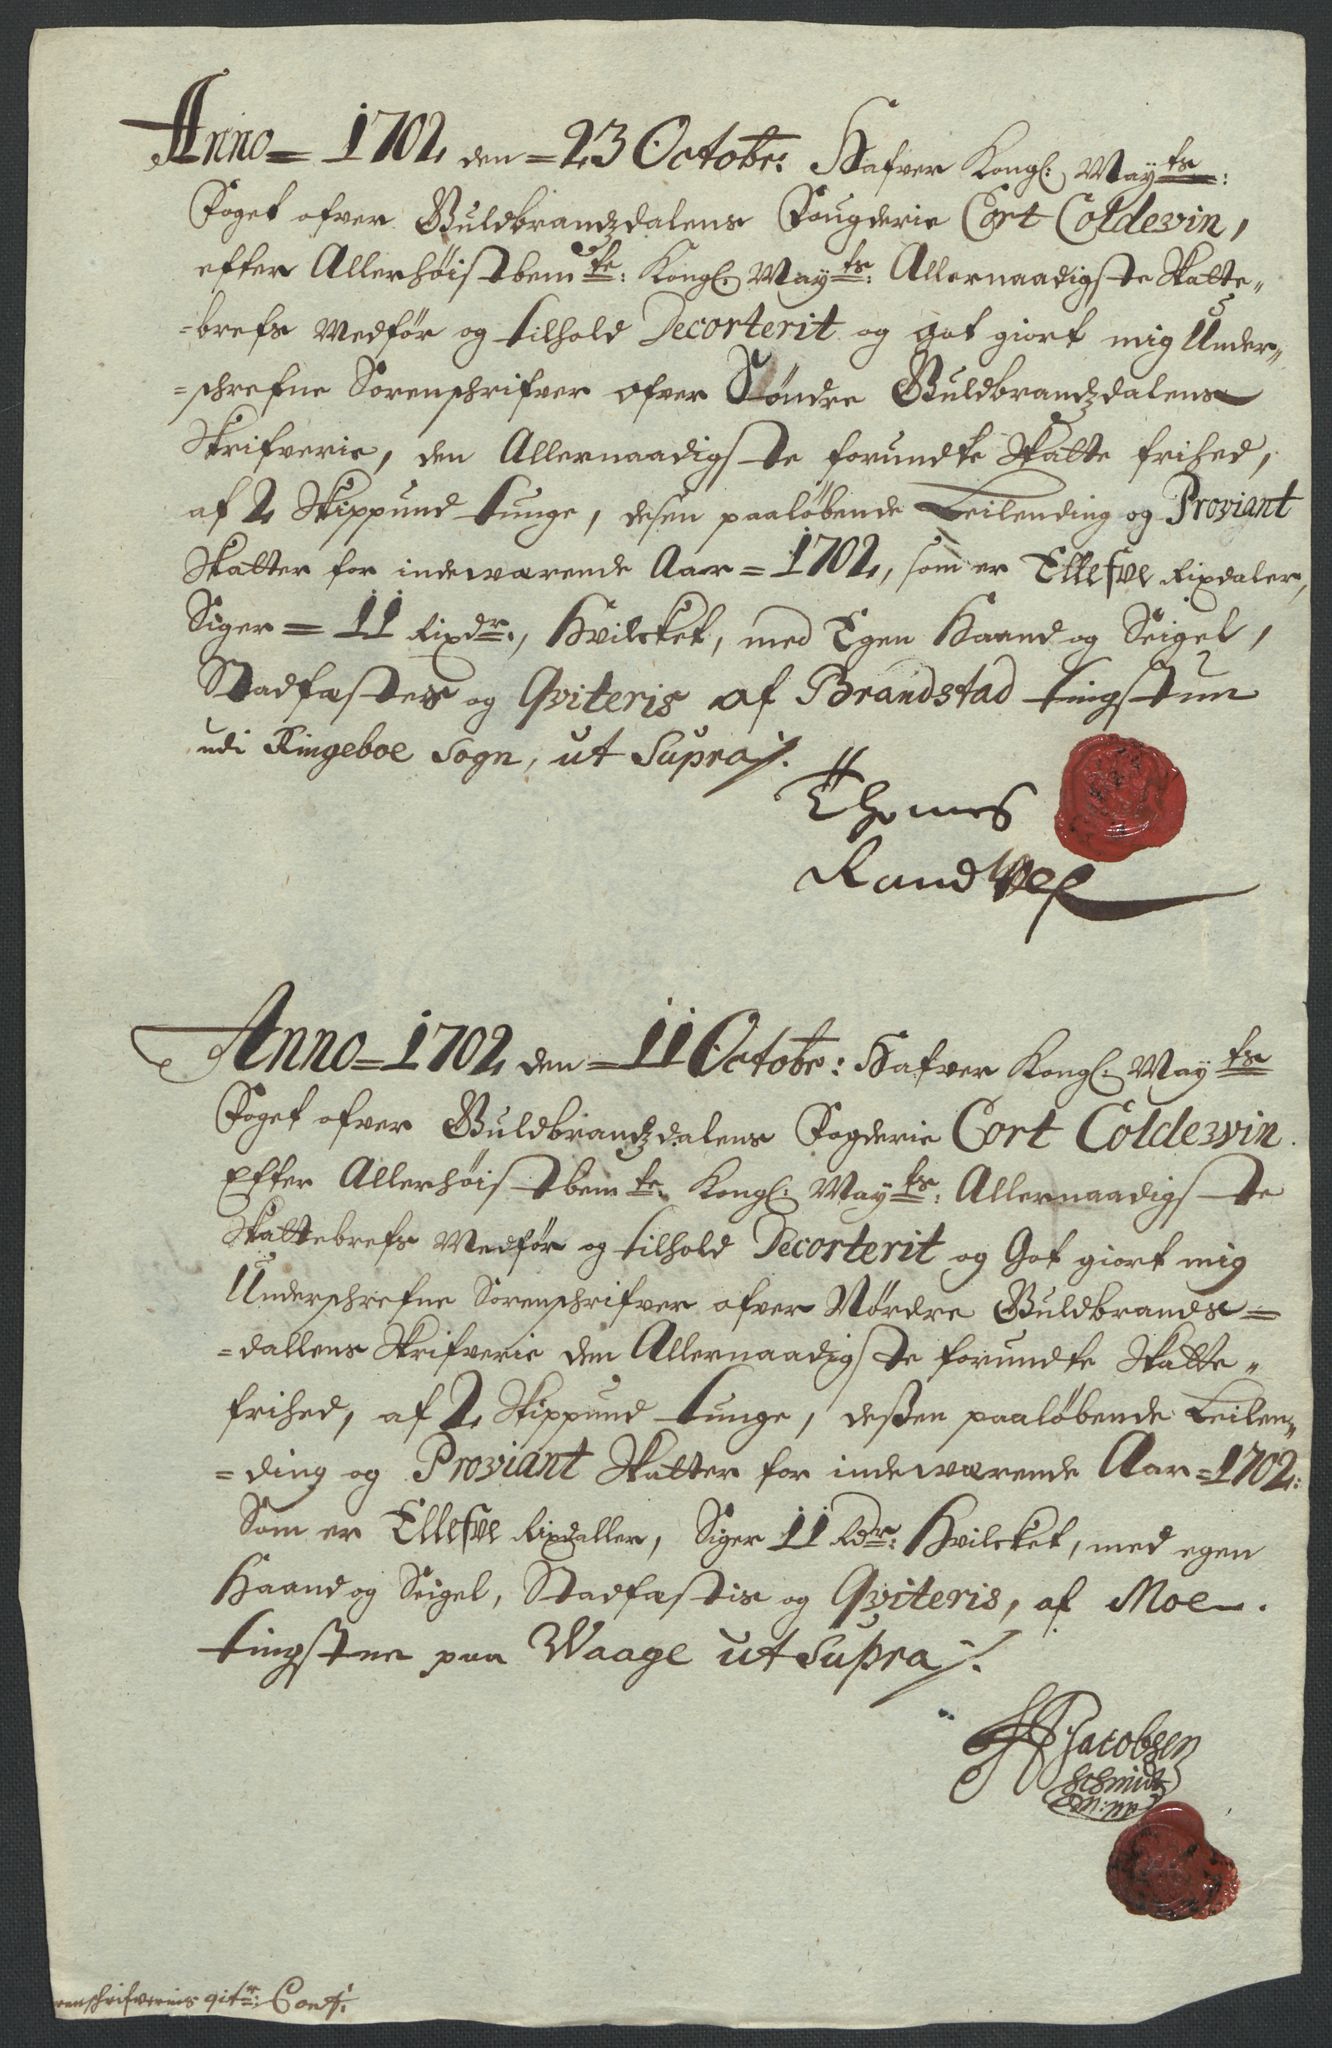 Anno = 1702 den = 23 Octobr: Hafver Kongl: Mayts:
Foget ofver Guldbrandzdalens Fougderie Cort Coldevin,
efter Allerhöist bemte: Kongl: Mayts: Allernaadigste Skatte„
=brefs Medför og tilhold Decorterit og got giort mig Under„
=schrefne Sorenschrifver ofver Söndre Guldbrandzdalens
Skrifverie, den Allernaadigste forundte Skatte frihed,
af 2 Skippund tunge, desen paalöbende Leilending og Proviant
Skatter for indewærende Aar = 1702, som er Ellefve Rixdaler,
Siger = 11 Rixdr:, Hvilcket, med Egen Haand og Seigel,
Stadfæstes og Qviteris af Brandstad tingstue
udi Ringeboe Sogn, ut Supra /.
Thomes
Randklef
Anno = 1702 den = 11 Octobr: Hafver Kongl: Mayts
Foget ofver Guldbrandzdalens Fogderie Cort Coldewin.
Efter Allerhöist bemte Kongl: Mayts: Allernaadigste
Skattebrefs Medför og tilhold Decorterit og Got giort mig
Underschrefne Sorenschrifver ofver Nördre Guldbrands=
=dallens Skrifverie den Allernaadigste forundte Skatte„
frihed, af 2 Skippund tunge, deßen paalöbende Leilen„
=ding og Proviant Skatter for indewærende Aar = 1702:
Som er Ellefve Rixdaller, Siger 11 Rdr: Hvilcket, med egen
Haand og Seigel, Stadfæstis og Qviteris, af Moe
tingstue paa Waage ut Supra /.
Jacobsen
Schmidt
m: m
renschrifvernis qitr: Cont: